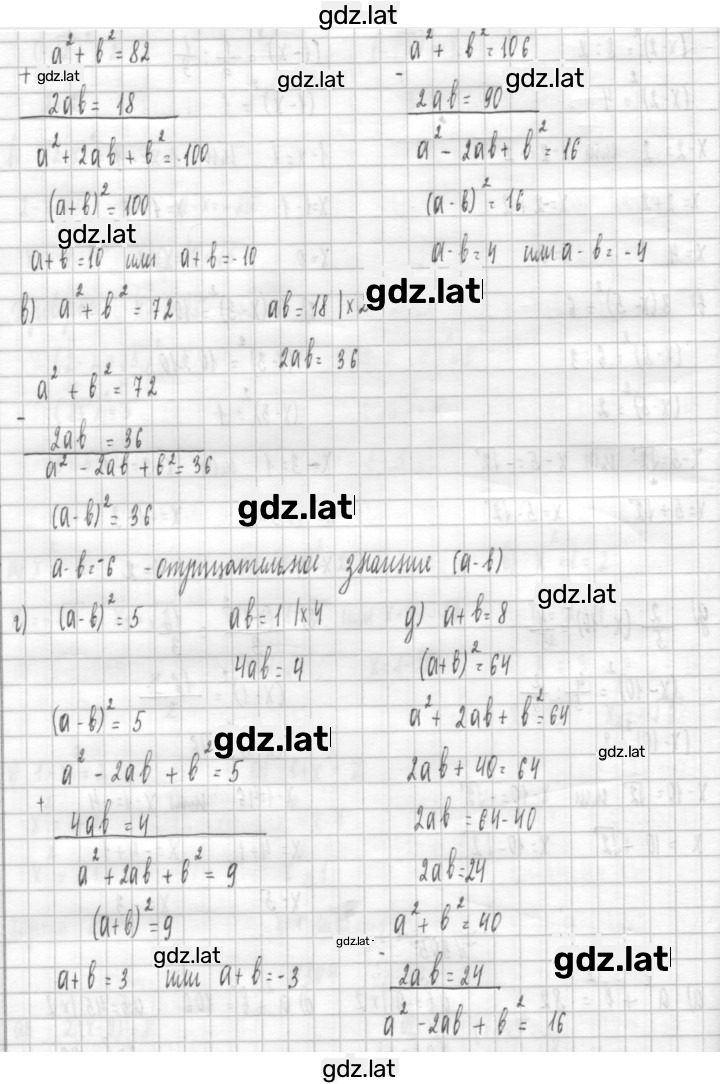 gdz.lat
a² + b² = 82
+ gdz.lat
gdz.lat
2ab = 18
a² + 2ab + b² = 100
(a+b)² = 100
gdz.lat
a + b = 10 или a + b = -10
a² + b² = 106
-
gdz.lat
2ab = 90
a² - 2ab + b² = 16
(a - b)² = 16
a - b = 4 или a - b = -4
gdz.lat
в) a² + b² = 72 ab = 18 | x 2
2ab = 36
a² + b² = 72
-
2ab = 36
a² - 2ab + b² = 36
gdz.lat
(a - b)² = 36
a - b = -6 - отрицательное значение (a - b)
г) (a - b)² = 5 ab = 1 | x 4
4ab = 4
(a - b)² = 5
gdz.lat
a² - 2ab + b² = 5
+
4ab = 4
a² + 2ab + b² = 9
(a+b)² = 9
gdz.lat
a + b = 3 или a + b = -3
gdz.lat
д) a + b = 8
(a+b)² = 64
a² + 2ab + b² = 64
gdz.lat
2ab + 40 = 64
2ab = 64 - 40
2ab = 24
a² + b² = 40
gdz.lat
-
gdz.lat
2ab = 24
a² - 2ab + b² = 16
gdz.lat